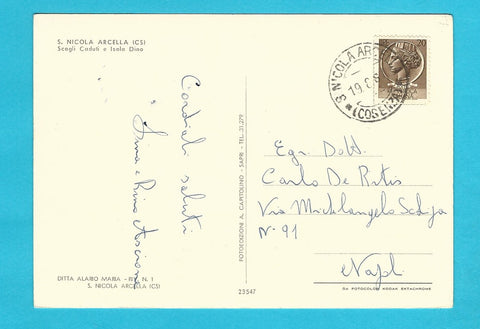 S. NICOLA ARCELLA (CS)
Scogli Caduti e Isola Dino
Cordiali saluti
e Rino
DITTA ALARIO MARIA - RIV. N. 1
S. NICOLA ARCELLA (CS)
FOTOEDIZIONI A. CAPITOLINO - SAPRI - TEL. 31.279
23547
20
S. NICOLA ARC
19.
(COSENZA)
Egr. Dott.
Carlo De Ritis
Via Michelangelo
N° 91
Napoli
DA FOTOCOLOR KODAK EKTACHROME